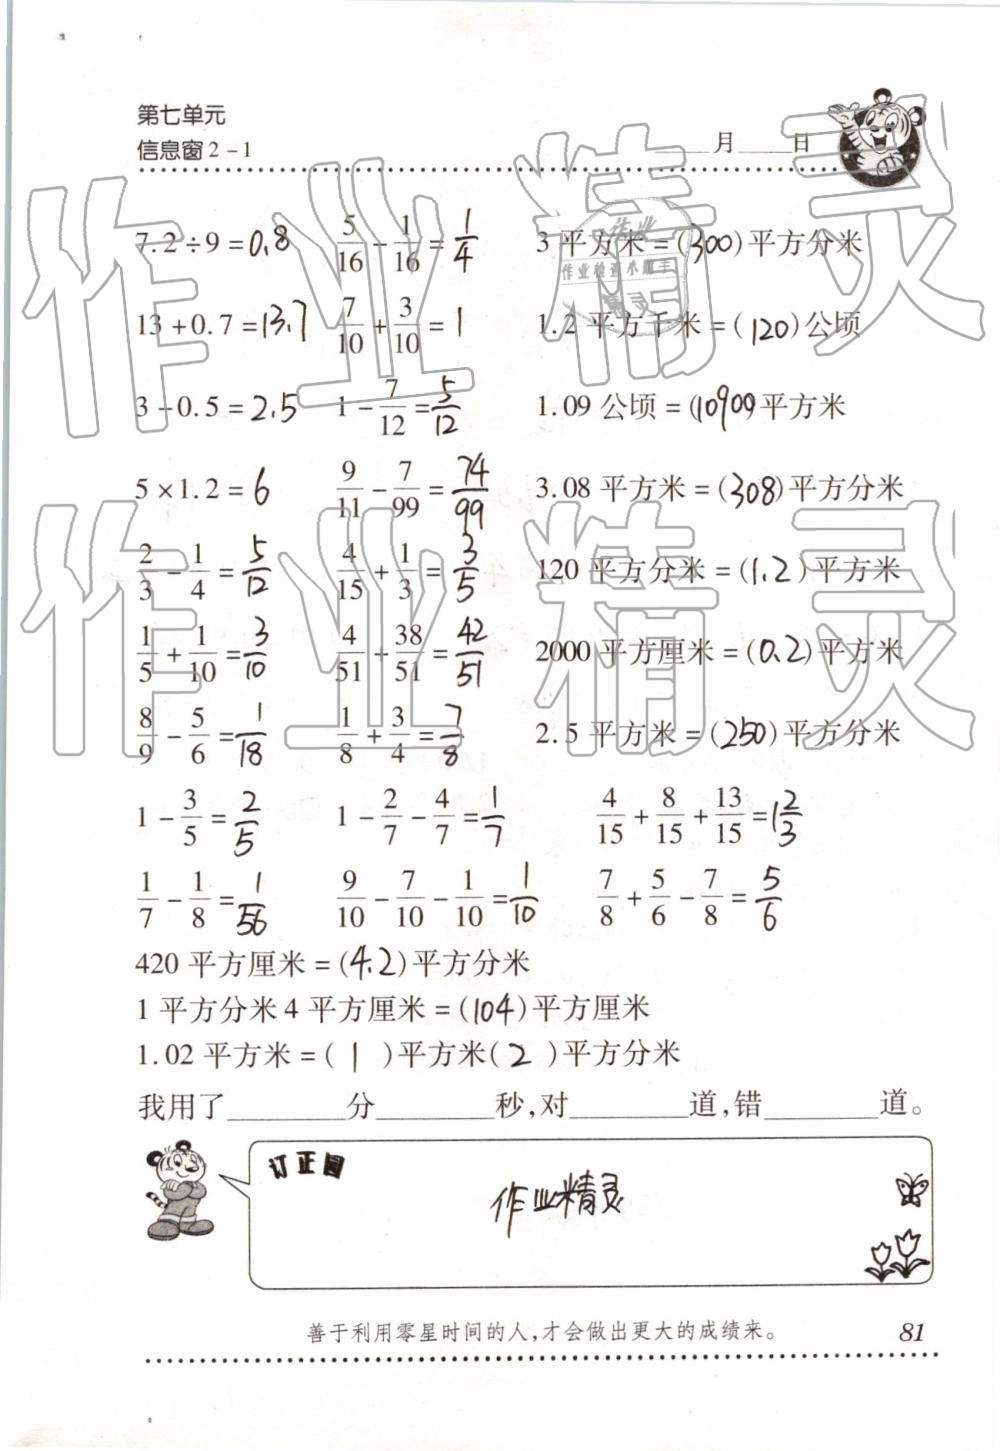 第七单元
信息窗2-1
月 日
7.2÷9=0.8 5/16-1/16=1/4 3平方米=(300)平方分米
13+0.7=13.7 7/10+3/10=1 1.2平方千米=(120)公顷
3-0.5=2.5 1-7/12=5/12 1.09公顷=(10900)平方米
5×1.2=6 9/11-7/99=74/99 3.08平方米=(308)平方分米
2/3-1/4=5/12 4/15+1/3=3/5 120平方分米=(1.2)平方米
1/5+1/10=3/10 4/51+38/51=42/51 2000平方厘米=(0.2)平方米
8/9-5/6=1/18 1/8+3/4=7/8 2.5平方米=(250)平方分米
1-3/5=2/5 1-2/7-4/7=1/7 4/15+8/15+13/15=1 2/3
1/7-1/8=1/56 9/10-7/10-1/10=1/10 7/8+5/6-7/8=5/6
420平方厘米=(4.2)平方分米
1平方分米4平方厘米=(104)平方厘米
1.02平方米=(1)平方米(2)平方分米
我用了________分________秒,对________道,错________道。
订正园
作业精灵
善于利用零星时间的人,才会做出更大的成绩来。
81
作业精灵
作业精灵
作业
作业检查小助手
精灵